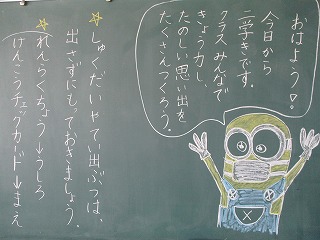 おはよう♡!
今日から
二学きです。
クラスみんなで
きょう力し、
たのしい思い出を
たくさんつくろう。
☆しゅくだいやてい出ぶつは、
出さずにもっておきましょう。
☆れんらくちょう→うしろ
けんこうチェックカード→まえ